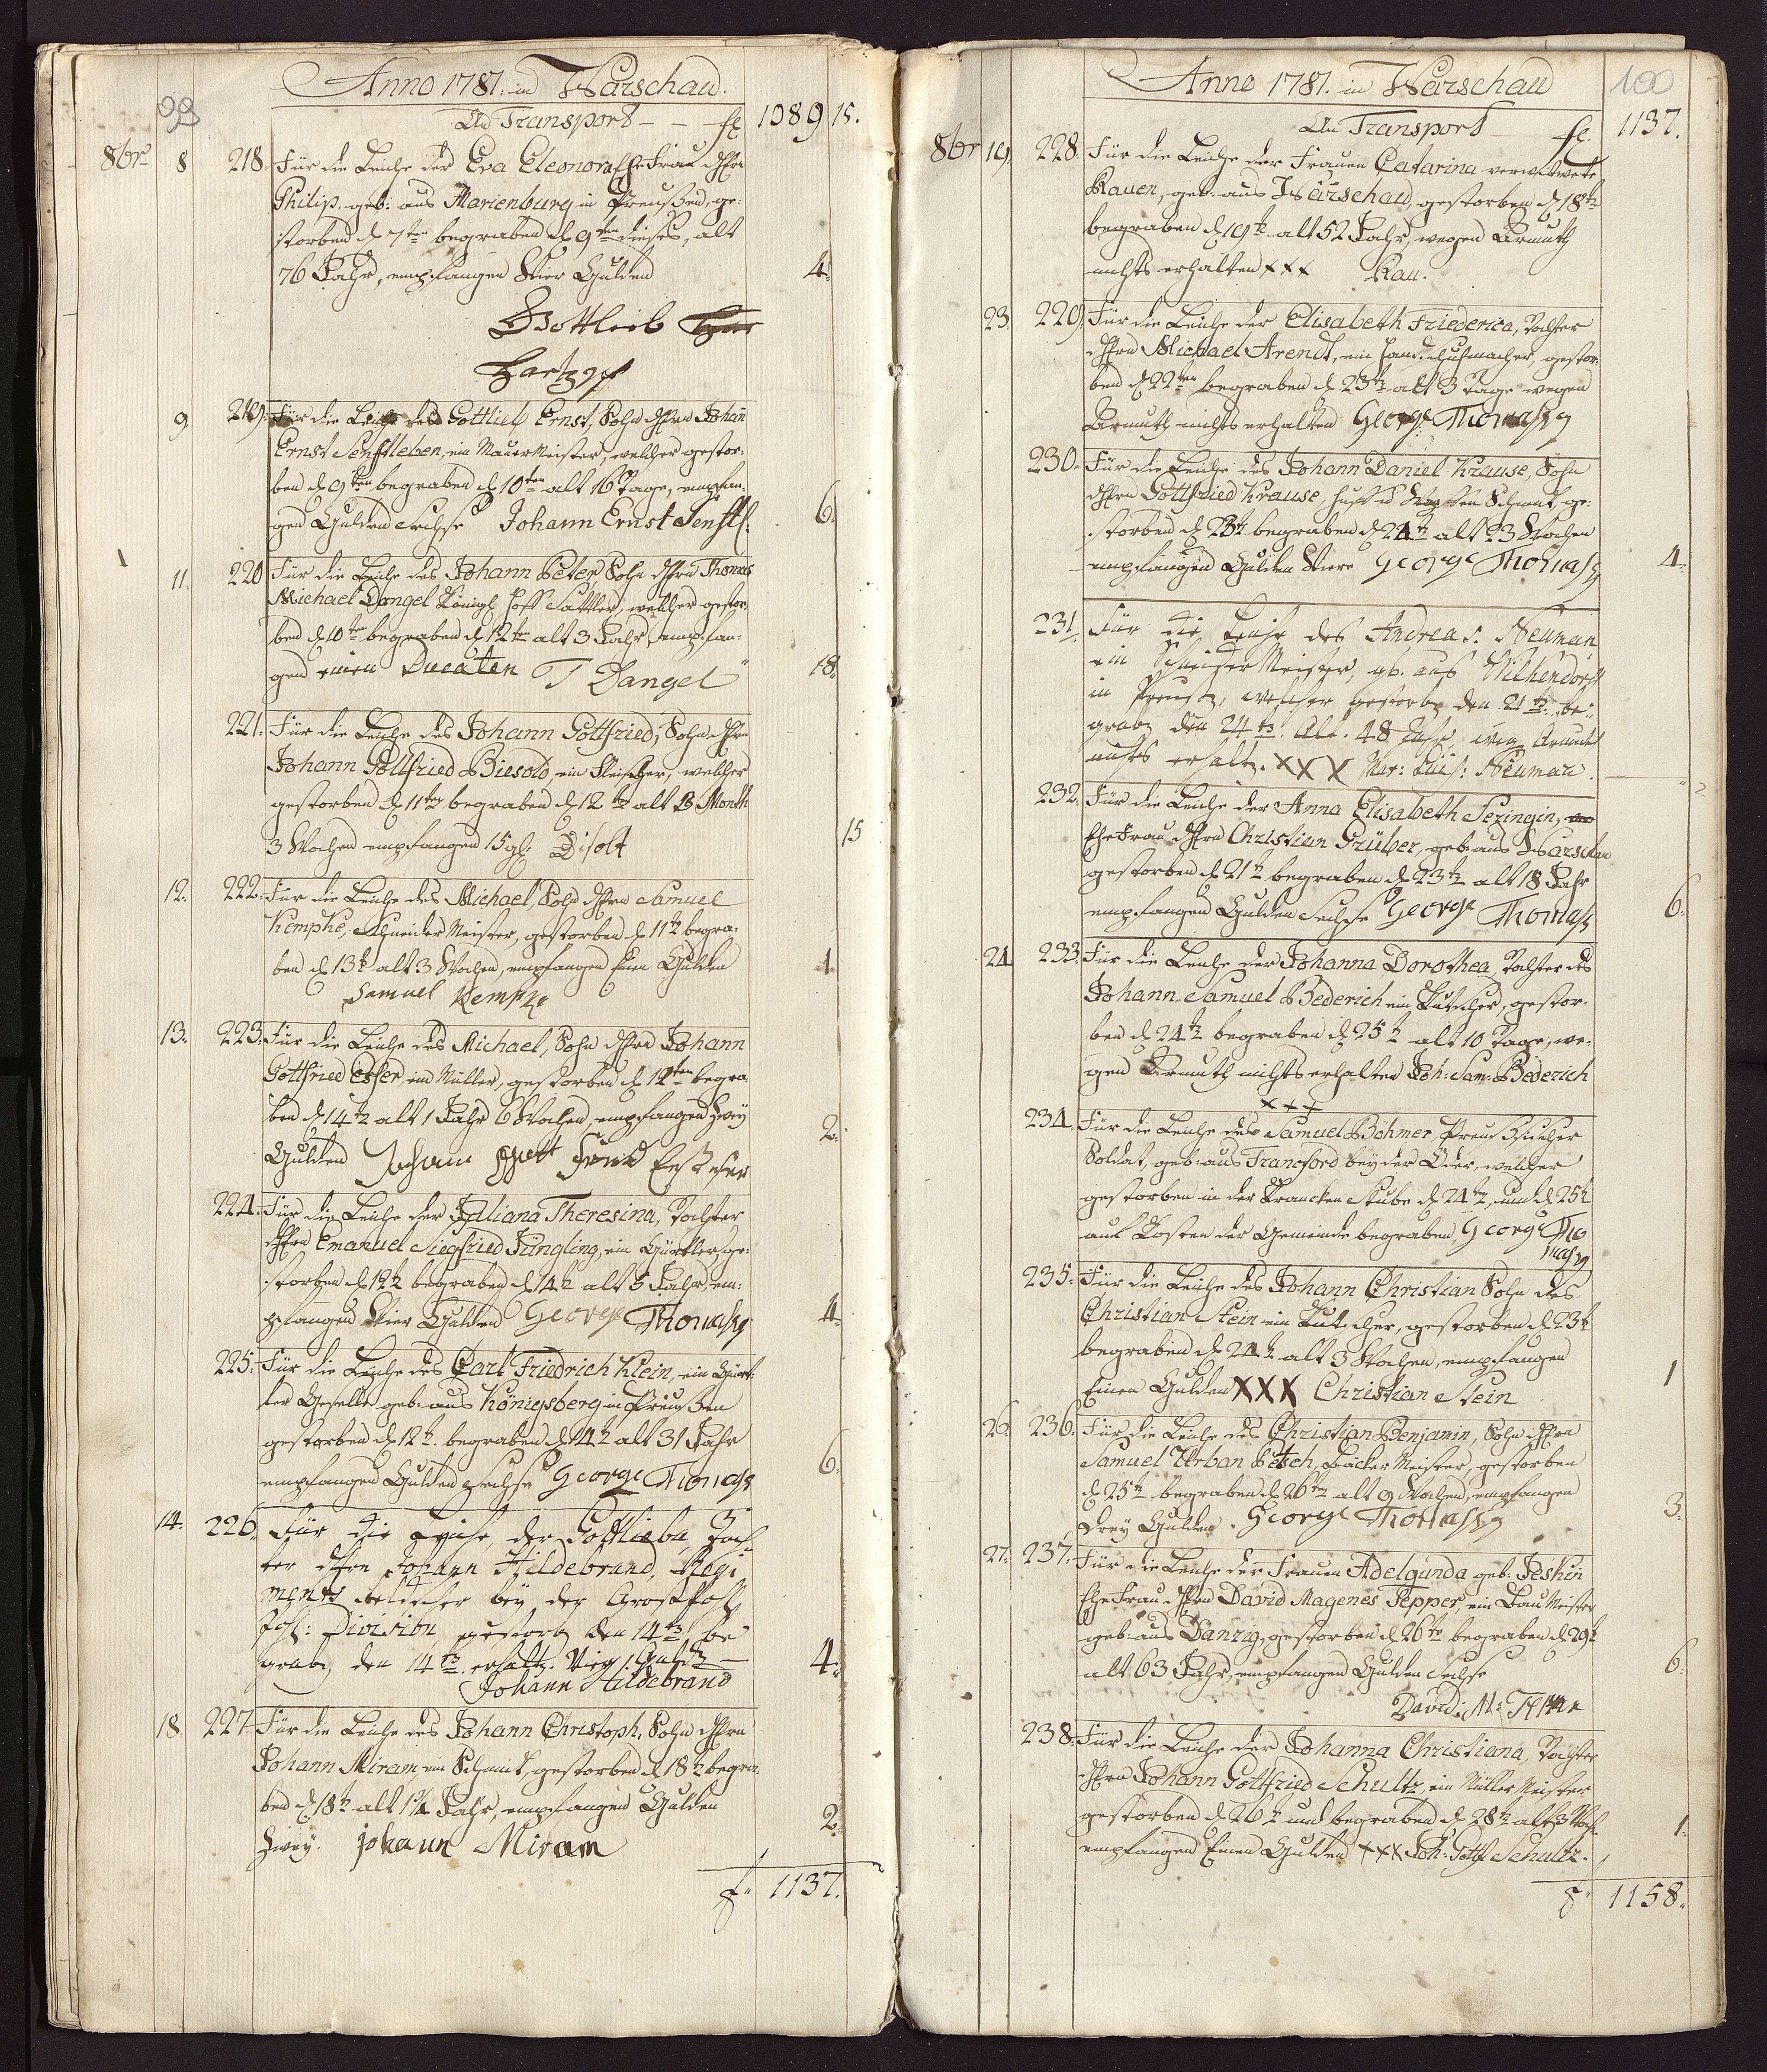 99
Anno 1781. in Warschau.
An Transport – – fl. 1089 15.
8br 8 218. Für die Leiche der Eva Eleonora Ehefrau Hrn
Philip, geb: aus Marienburg in Preußen, ge-
storben d. 7ten begraben d. 9ten dieses, alt
76 Jahr, empfangen Vier Gulden 4.
Gottleib
Hartzog
9 219. Für die Leiche des Gottlieb Ernst, Sohn Hrn Johan̄
Ernst Senftleben, ein Mauer Meister, welcher gestor-
ben d. 9ten begraben d. 10ten alt 16 Tage, empfan-
gen Gulden Sechse Johann Ernst Senftl: 6.
11. 220 Für die Leiche des Johann Peter, Sohn Hrn Thomas
Michael Dangel Königl. Hoff Sattler, welcher gestor-
ben d. 10ten begraben d. 12ten alt 3 Jahr, empfan-
gen einen Ducaten T Dangel 18.
221. Für die Leiche des Johann Gottfried, Sohn Hrn
Johann Gottfried Biesold ein Fleischer, welcher
gestorben d. 11ten begraben d. 12ten alt 3 Month
3 Wochen empfangen 15 gl: Disolt 15
12. 222. Für die Leiche des Michael, Sohn Hrn Samuel
Kemphe, Schneider Meister, gestorben d. 11t begra-
ben d. 13t alt 3 Wochen, empfangen Einen Gulden 1.
Samuel Kempfe
13. 223. Für die Leiche des Michael, Sohn Hrn Johann
Gottfried Esser, ein Müller, gestorben d. 12ten begra-
ben d. 14t alt 1 Jahr 6 Wochen, empfangen Zwey 2.
Gulden Johann Gott Fried
224. Für die Leiche der Juliana Theresina, Tochter
Hrn Emanuel Siegfried Jüngling, ein Gürtler ge-
storben d. 12t begraben d. 14t alt 5 Jahr, em-
pfangen Vier Gulden George Thomass 4.
225. Für die Leiche des Carl Friedrich Klein, ein Gürt-
ler Geselle geb. aus Königsberg in Preußen
gestorben d. 12t. begraben d. 14t alt 31 Jahr
empfangen Gulden Sechse George Thomass 6.
14. 226. Für die Leiche der Gottlieba, Toch-
ter Hrn Johann Hildebrand, Regi
ments bey der Grosspoh
Division, gestorb den 14t be
grab, den 14t erhalt. Vier Guld 4.
Johann Hildebrand
18 227 Für die Leiche des Johann Christoph, Sohn Hrn
Johann Miram ein Schmid, gestorben d. 18t begra-
ben d. 18t alt 1¼ Jahr, empfangen Gulden 2.
Zwey. johann Miram
f. 1137.
100
Anno 1781. in Warschau
An Transport fl. 1137.
8br 19. 228. Für die Leiche der Frauen Catarina verwitwete
Rauen, geb. aus Warschau, gestorben d. 18t
begraben d. 19t alt 52 Jahr, wegen Armuth
nichts erhalten xxx Rau.
23. 229. Für die Leiche der Elisabeth Friederica, Tochter
Hrn Michael Arendt, ein Handschuhmacher, gestor-
ben d. 22ten begraben d. 23t alt 3 Tage wegen
Armuth nichts erhalten George Thomass
230. Für die Leiche des Johann Daniel Krause, Sohn
Hrn Gottfried Krause, Huff u. Waffen Schmidt, ge-
storben d. 23t begraben d. 24t alt 23 Wochen
empfangen Gulden Viere George Thomass 4.
231. Für die Leiche des Andreas Neuman
ein Meister, geb. aus Wilkendorf
in Preuss, welcher gestorb den 21t be-
grab den 24t. Alt. 48 Jahr weg Armuth
nichts erhalt. XXX Mar: Luis: Neuman.
232. Für die Leiche der Anna Elisabeth Sezingin,
Ehefrau Hrn Christian Grüber, geb: aus Warschau
gestorben d. 21t begraben d. 23t alt 18 Jahr
empfangen Gulden Sechse George Thomass 6.
24 233. Für die Leiche der Johanna Dorothea, Tochter des
Johann Samuel Bederich ein Kutscher, gestor-
ben d. 24t begraben d. 25t alt 10 Tage, we-
gen Armuth nichts erhalten Joh: Sam: Bederich
xxx
234. Für die Leiche des Samuel Böhmer, Preußischer
Soldat, geb: aus Francford bey der Oder, welcher
gestorben in der Krancken Stube d. 24t, und d. 25t
auf Kosten der Gemeinde begraben, George Tho
mass
235. Für die Leiche des Johann Christian Sohn des
Christian Stein ein Kutscher, gestorben d. 23t
begraben d. 24t alt 3 Wochen, empfangen
Einen Gulden XXX Christian Stein 1
26. 236. Für die Leiche des Christian Benjamin, Sohn Hrn
Samuel Urban Petsch, Bäcker Meister, gestorben
d. 25t begraben d. 26t alt 9 Wochen, empfangen
Drey Gulden. George Thomass 3.
27. 237. Für die Leiche der Frauen Adelgunda geb: Jeskin
Ehefrau Hrn David Magenes Tepper, ein Bau Meister
geb: aus Danzig, gestorben d. 26t begraben d. 29t
alt 63 Jahr, empfangen Gulden Sechse 6.
David: M:
238. Für die Leiche der Johanna Christiana, Tochter
Hrn Johann Gottfried Schultz, ein Müller Meister
gestorben d. 26t und begraben d. 28t alt 3 Woch
empfangen Einen Gulden xxx Joh: Gottf Schultz. 1.
f. 1158.